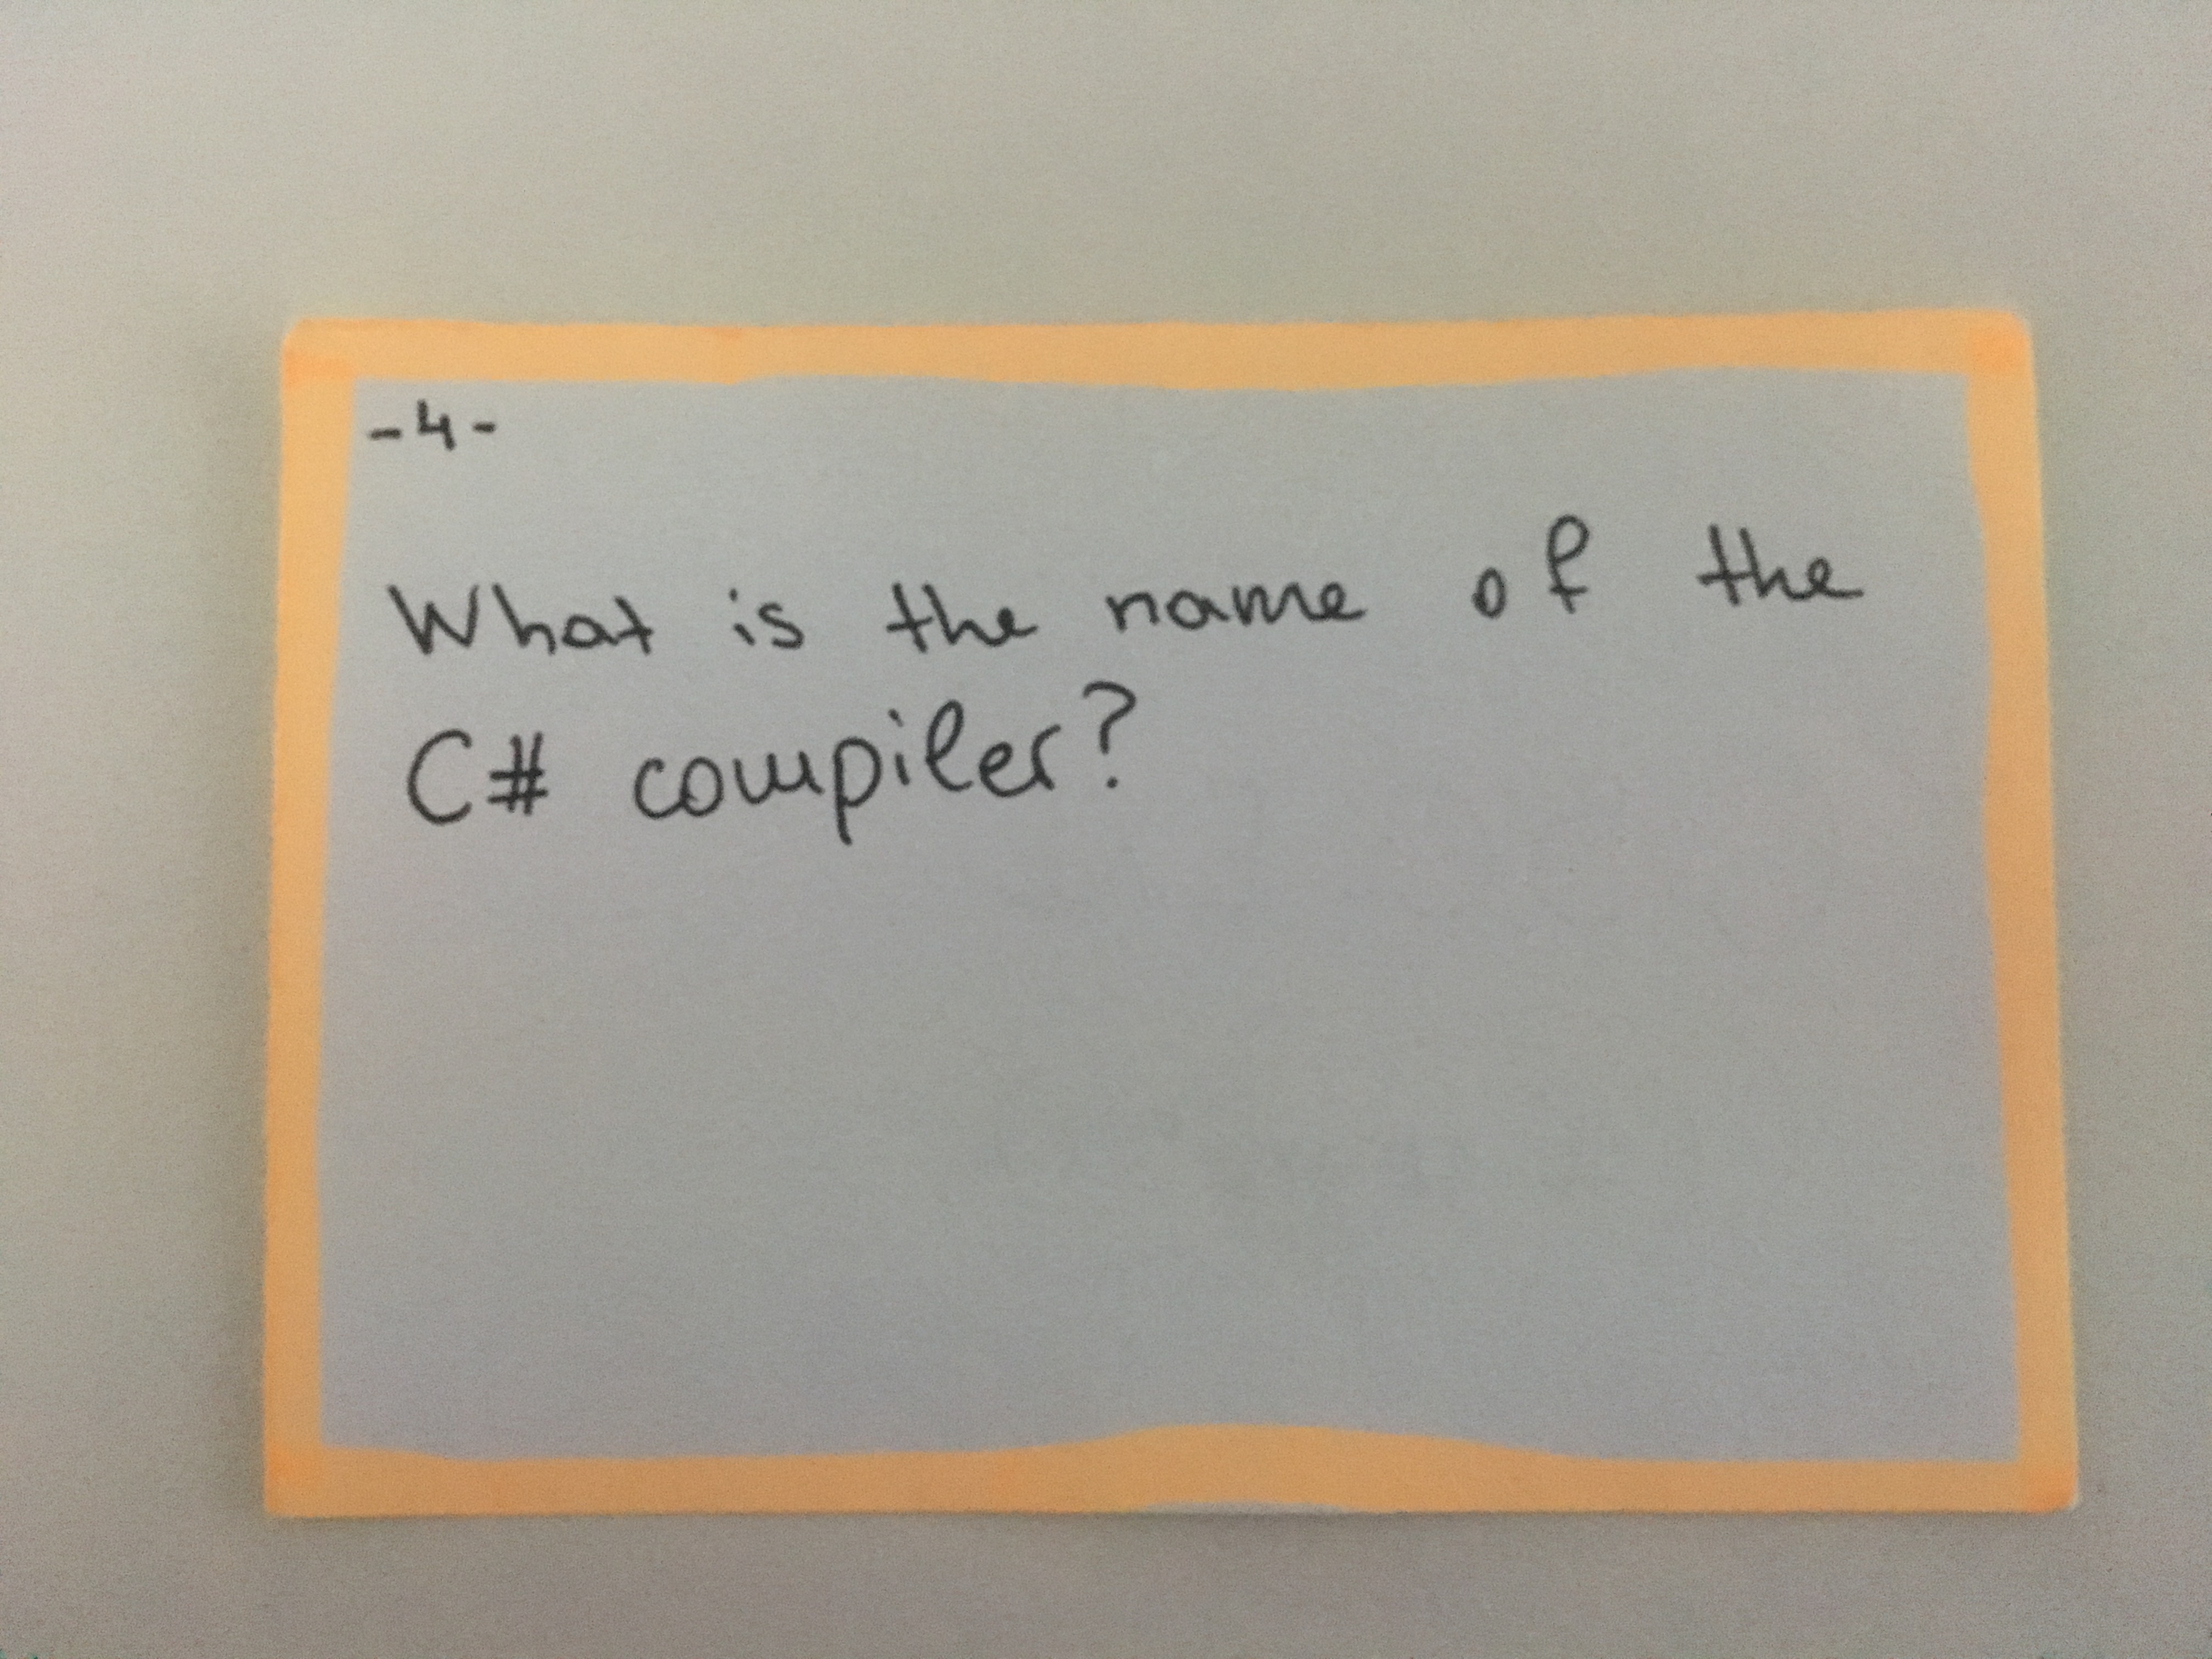 -4-
What is the name of the
C# compiler?